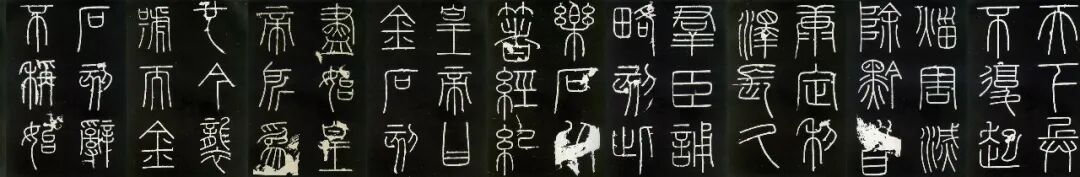 天下兵
不復起
災害滅
除黔首
康定利
澤長久
羣臣誦
略刻此
樂石以
著經紀
皇帝曰
金石刻
盡始皇
帝所爲
也今襲
號而金
石刻辭
不稱始